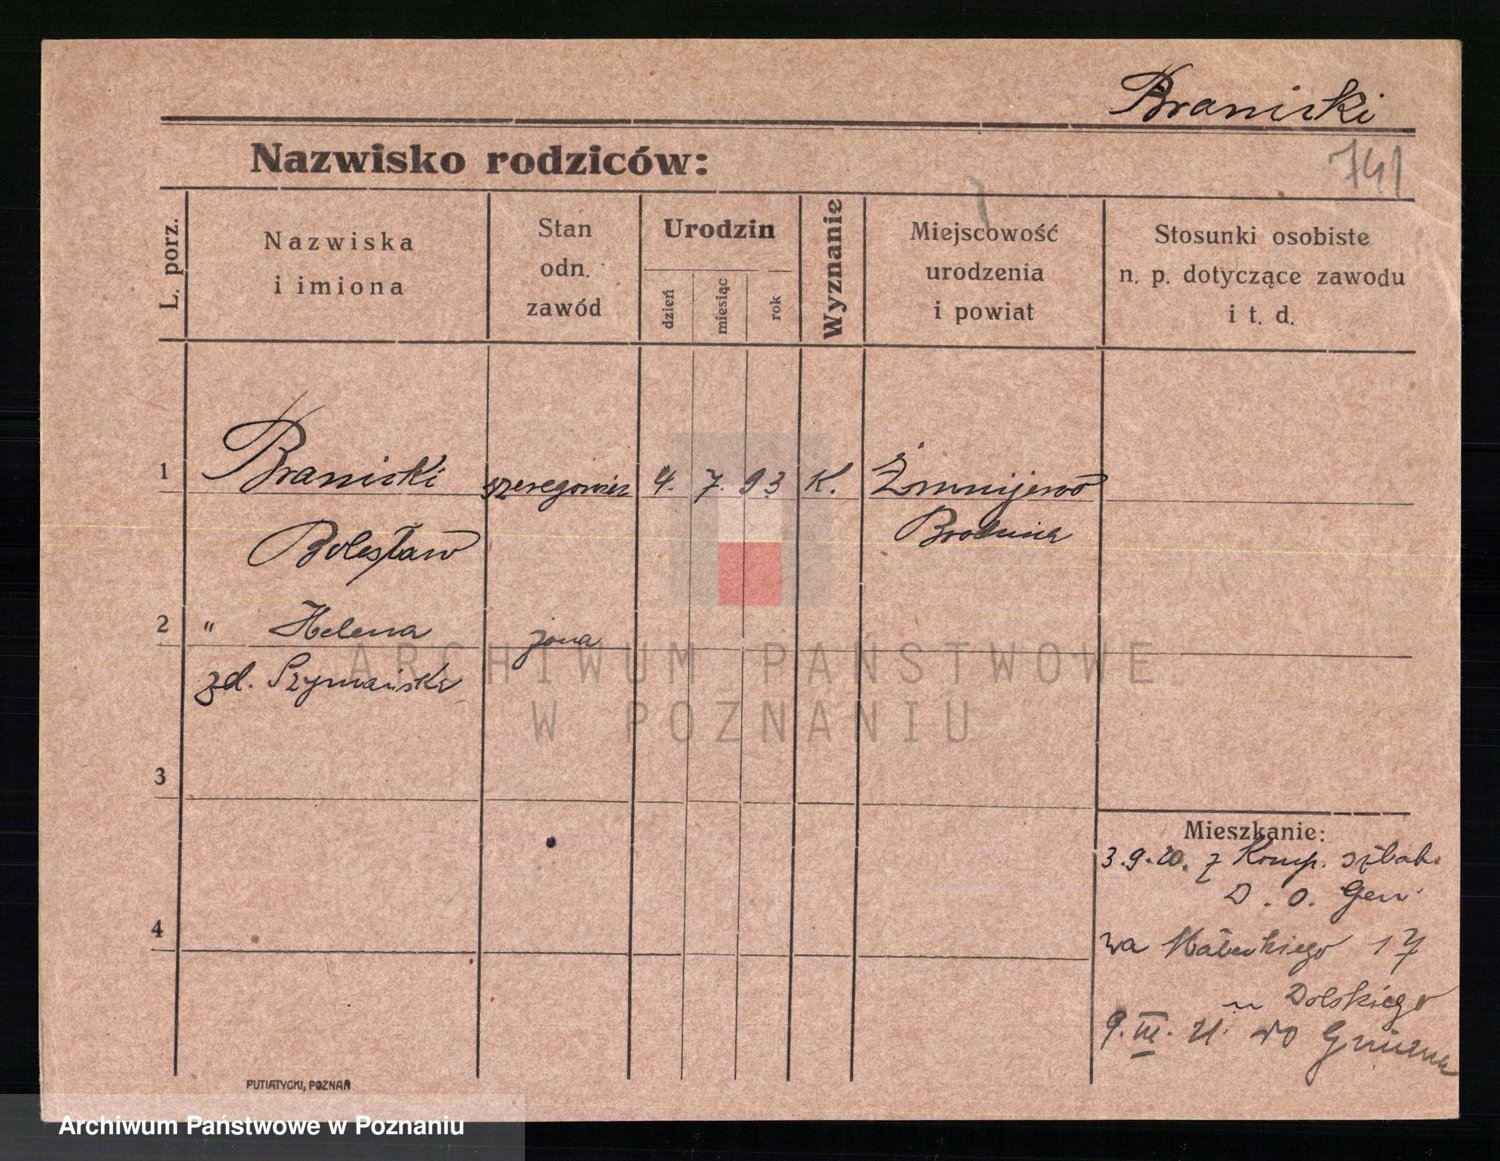 Braniski
Nazwisko rodziców:
741
L. porz.
Nazwiska
i imiona
Stan
odn.
zawód
Urodzin
dzień
miesiąc
rok
Wyznanie
Miejscowość
urodzenia
i powiat
Stosunki osobiste
n. p. dotyczące zawodu
i t. d.
1 Braniski szeregowiec 4. 7. 93 K. Żmnijewo
Bolesław Brodnica
2 " Helena żona
zd. Szymańska
3
4
Mieszkanie:
3.9.20. z Komp. sztab.
D. O. Gen
na Małeckiego 17
u Dolskiego
9. III. 21. do Gniezna
PUTIATYCKI, POZNAŃ
ARCHIWUM PAŃSTWOWE
W POZNANIU
Archiwum Państwowe w Poznaniu